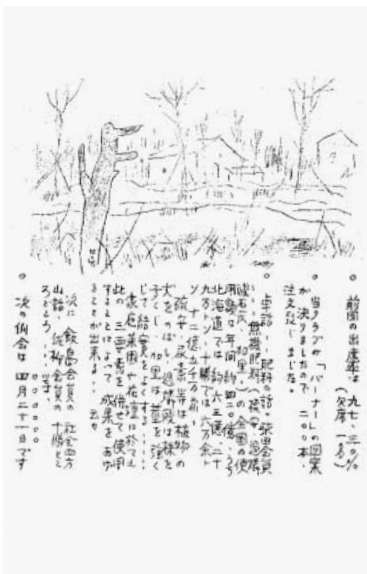 ○ 前回の出席率は 九七・三〇%
(欠席 一名)
○ 当クラブの「バーナー」の図案
が 決りましたので、二〇〇本、
注文致しました。
○ 卓話 — 肥料の話。 張田会員
… 無機肥料(硫安、過燐
酸石灰、加里)の全国の使
用数は年間約四二〇億、うち
北海道では約六三億、二十
九万トン、十勝では六万余ト
ン、十二億五千万……
… 硫安、尿素等は植物の
丈をのばし、過燐酸は稔を
よくし、加里は茎を強く
して結実をよくする……、
家庭菜園や花壇に於ても
此の三要素を併せて使用
することによって成果をあげ
ることが出来る… 云々
次に 飯島会員の 社会四方
山話、佐野会員の 十勝ところ
どころ、…等。
○○○○○○
○ 次の例会は 四月二十一日です